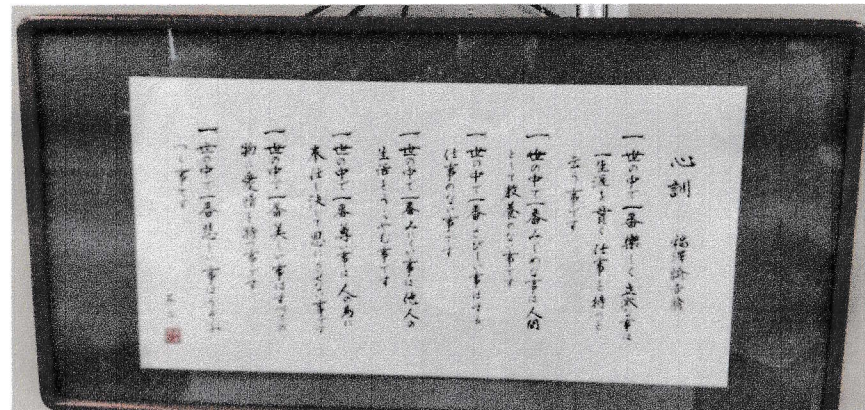 心訓 福澤諭吉翁
一世の中で一番楽しく立派な事は
一生涯を貫く仕事を持つと
云う事です
一世の中で一番みじめな事は人間
として教養のない事です
一世の中で一番さびしい事はする
仕事のない事です
一世の中で一番みにくい事は他人の
生活をうらやむ事です
一世の中で一番尊い事は人の為に
奉仕し決して恩にきせない事です
一世の中で一番美しい事はすべての
物に愛情を持つ事です
一世の中で一番悲しい事はうそを
つく事です